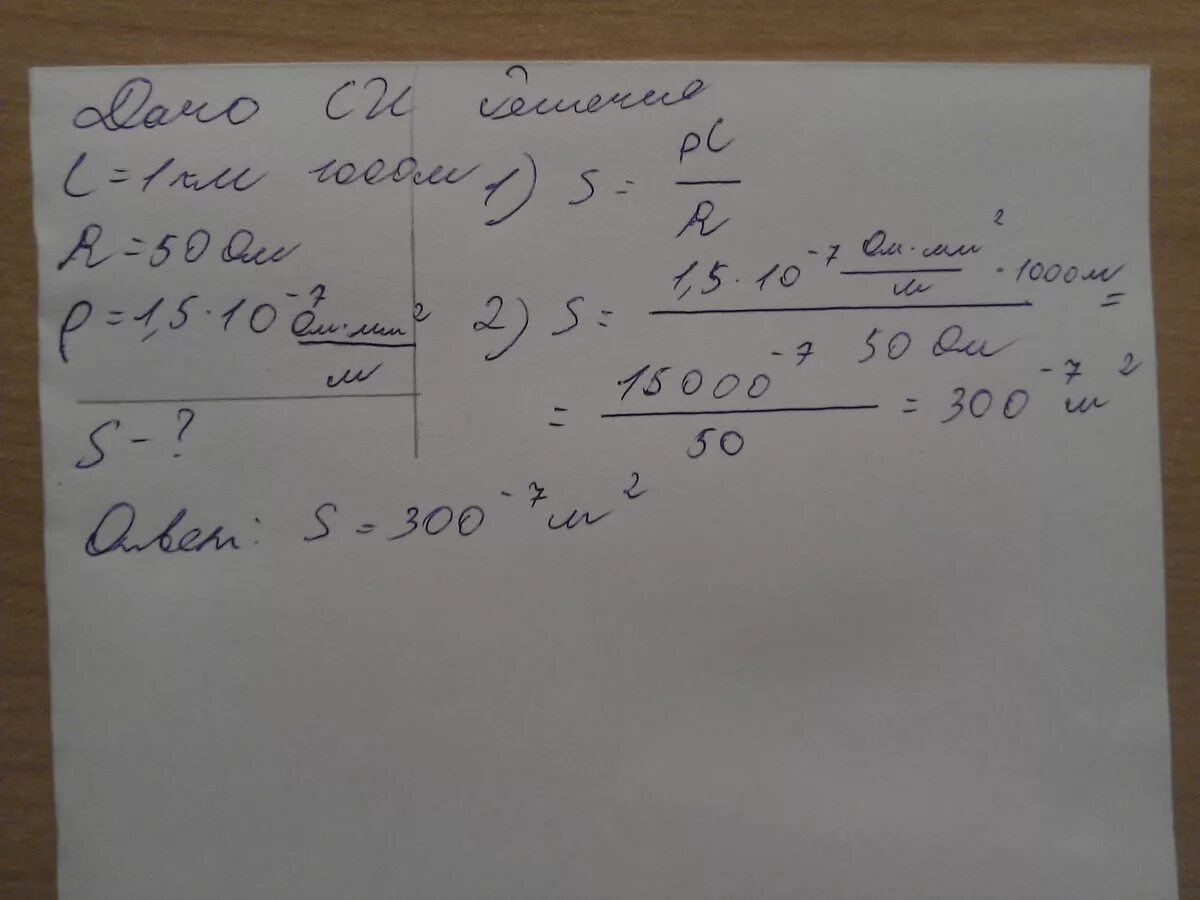 Дано СИ Решение
l = 1 км 1000 м
R = 50 Ом
ρ = 1,5 · 10⁻⁷ Ом·мм²/м
S - ?
1) S = ρl/R
2) S = 1,5 · 10⁻⁷ Ом·мм²/м · 1000м / 50 Ом =
= 15000⁻⁷/50 = 300⁻⁷ м²
Ответ: S = 300⁻⁷ м²